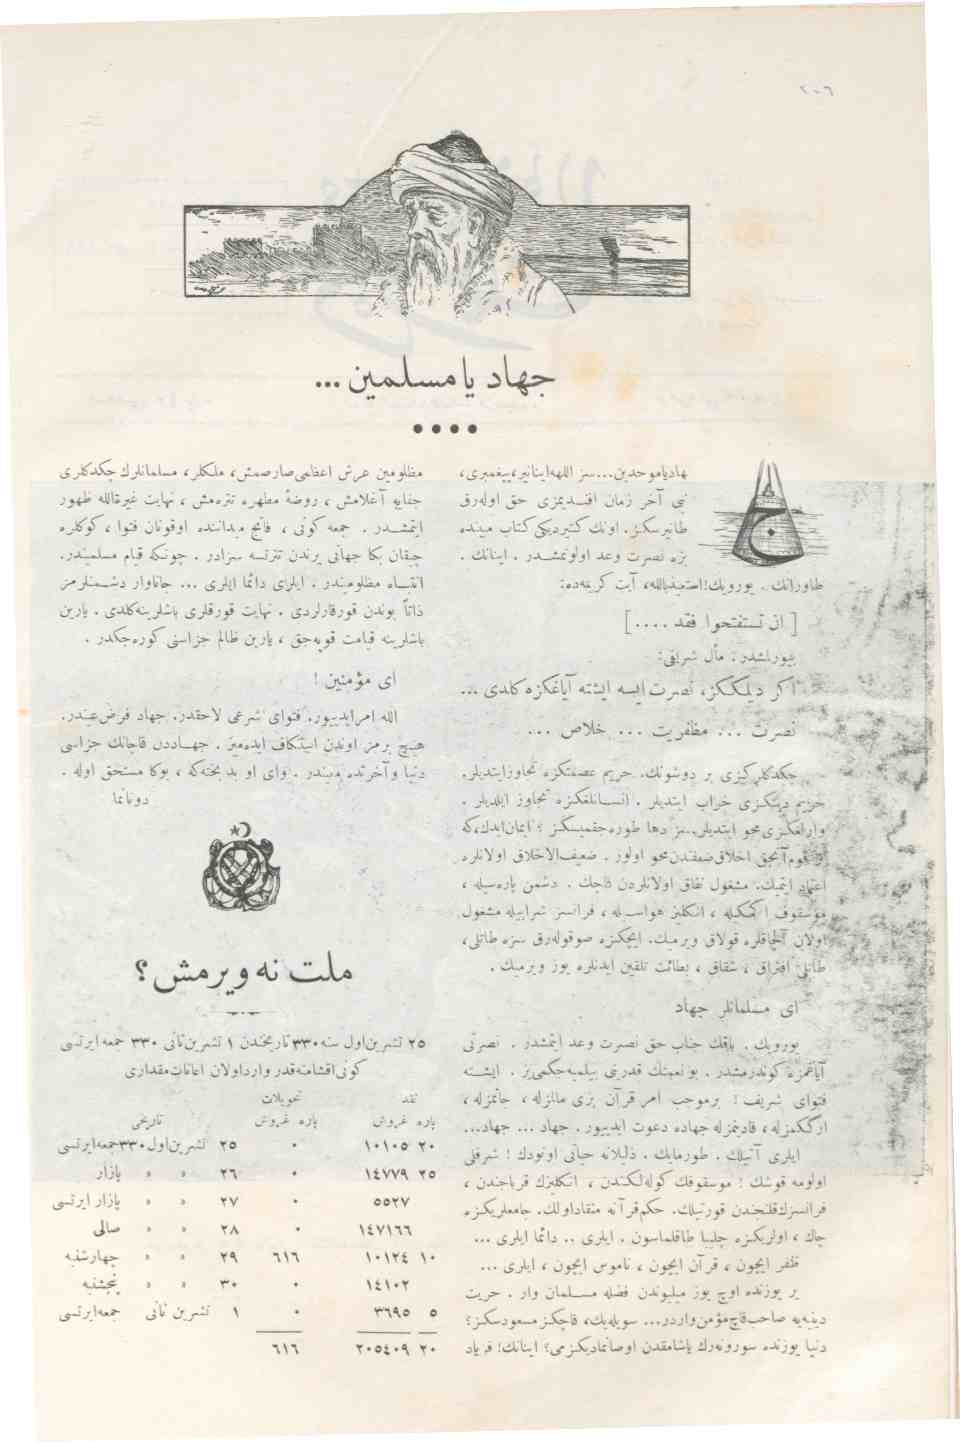 ٢٠٦
جهاد یا مسلمین ...
جهاد یا موحدین... سز اللهه اینانیر، پیغمبری،
نبی آخر زمان افندیمزی حق اوله‌رق
طانیرسکز. اونك کتیردیکی کتاب مبینده
بزه نصرت وعد اولونمشدر. اینانك.
طاورانك. یورویك! استعیذ بالله، آیت کریمه‌ده:
[ ان تستفتحوا فقد .... ]
بیورلمشدر. مآل شریفی:
اکر دیلدیککز، نصرت ایسه ایشته آیاغکزه کلدی ...
نصرت ... مظفریت ... خلاص ...
چکدکلرکیزی بر دوشونك. حریم عصمتکزه تجاوز ایتدیلر.
حریم دینکزی خراب ایتدیلر. انسانلغکزه تجاوز ایلدیلر.
وارلغکزی محو ایتدیلر.. سز دها طوره‌جقمیسکز؟ ایمان ایدك، که
بر قوم آنجق اخلاق ضعفندن محو اولور. ضعیف الاخلاق اولانلره
اعتماد ایتمیك. مشغول نفاق اولانلردن قاچك. دشمن پاره‌سیله،
موسقوف اکمکیله، انکلیز هواسیله، فرانسز شرابیله مشغول
اولان آلچاقلره قولاق ویرمیك. ایچکزه صوقوله‌رق سزه طاتلی،
طاتلی افتراق، شقاق، بطائت تلقین ایدنلره یوز ویرمیك.
ای مسلمانلر جهاد
یورویك. باقك جناب حق نصرت وعد ایتمشدر. نصرتی
آیاغمزه کوندرمشدر. بو نعمتك قدرینی بیلمیه‌جکمی‌یز. ایشته
فتوای شریف: بر موجب امر قرآن بزی مالمزله، جانمزله،
ارککمزله، قادینمزله جهاده دعوت ایدییور. جهاد ... جهاد...
ایلری آتیلك. طورمایك. ذلیلانه حیاتی اونودك! شرفلی
اولومه قوشك! موسقوفك کوله‌لکندن، انکلیزك قرباجندن،
فرانسزك قلنجندن قورتیلك. حکم قرآنه منقاد اولك. جامعلریکزه
چاك، اولریکزه چلیپا طاقلماسون. ایلری .. دائما ایلری ...
ظفر ایچون، قرآن ایچون، ناموس ایچون، ایلری ...
یر یوزنده اوچ یوز میلیوندن فضله مسلمان وار. حریت
دینیه‌یه صاحب قاچ مؤمن واردر... سویله‌یك، قاچکز مسعودسکز؟
دنیا یوزنده سورونه‌رك یاشامقدن اوصانمادیکزمی؟ اینانك! فریاد
مظلومین عرش اعظمی صارصمش، ملکلر، مسلمانلرك چکدکلری
جفایه آغلامش، روضهٔ مطهره تتره‌مش، نهایت غیرةالله ظهور
ایتمشدر. جمعه کونی، فاتح میداننده اوقونان فتوا، کوکلره
چیقان بکا جهانی یرندن تترتسه سزادر. چونکه قیام مسلمیندر.
انتباه مظلومیندر. ایلری دائما ایلری ... جاناوار دشمنلرمز
ذاتاً بوندن قورقارلردی. نهایت قورقلری باشلرینه کلدی. یارین
باشلرینه قیامت قوپه‌جق، یارین ظالم جزاسنی کوره‌جکدر.
ای مؤمنین!
الله امر ایدییور. فتوای شرعی لاحقدر. جهاد فرض عیندر.
هیچ برمز اوندن استنکاف ایده‌میز. جهاددن قاچانك جزاسی
دنیا و آخرتده مبیندر. وای او بد بخته‌که، بوکا مستحق اوله.
دوناناما
ملت نه ویرمش؟
٢٥ تشرین اول سنه ٣٣٠ تاریخندن ١ تشرین ثانی ٣٣٠ جمعه ایرتسی
کونی اقشامنه قدر وارد اولان اعانات مقداری
نقد تحویلات
پاره غروش پاره غروش تاریخی
٢٠ ١٠١٠٥ ٠ ٢٥ تشرین اول ٣٣٠ جمعه ایرتسی
٢٥ ١٤٧٧٩ ٠ ٢٦ » » پازار
٥٥٢٧ ٠ ٢٧ » » پازار ایرتسی
١٤٧١٦٦ ٠ ٢٨ » » صالی
١٠ ١٠١٢٤ ٦١٦ ٢٩ » » چهارشنبه
١٤١٠٢ ٠ ٣٠ » » پنجشنبه
٥ ٣٦٩٥ ٠ ١ تشرین ثانی جمعه ایرتسی
٢٠ ٢٠٥٤٠٩ ٦١٦